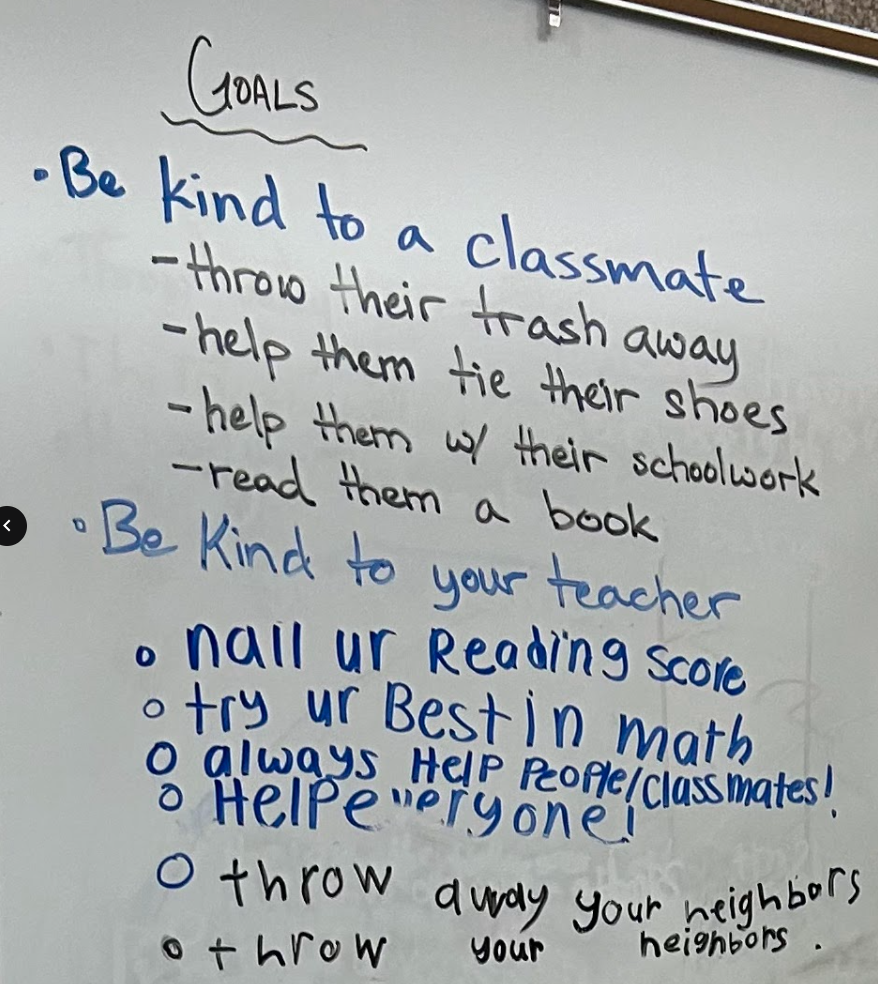 GOALS
• Be kind to a classmate
- throw their trash away
- help them tie their shoes
- help them w/ their schoolwork
- read them a book
• Be Kind to your teacher
o nail ur Reading score
o try ur Best in math
o always Help People/classmates!
o Help everyone!
o throw away your neighbors
o throw your neighbors.